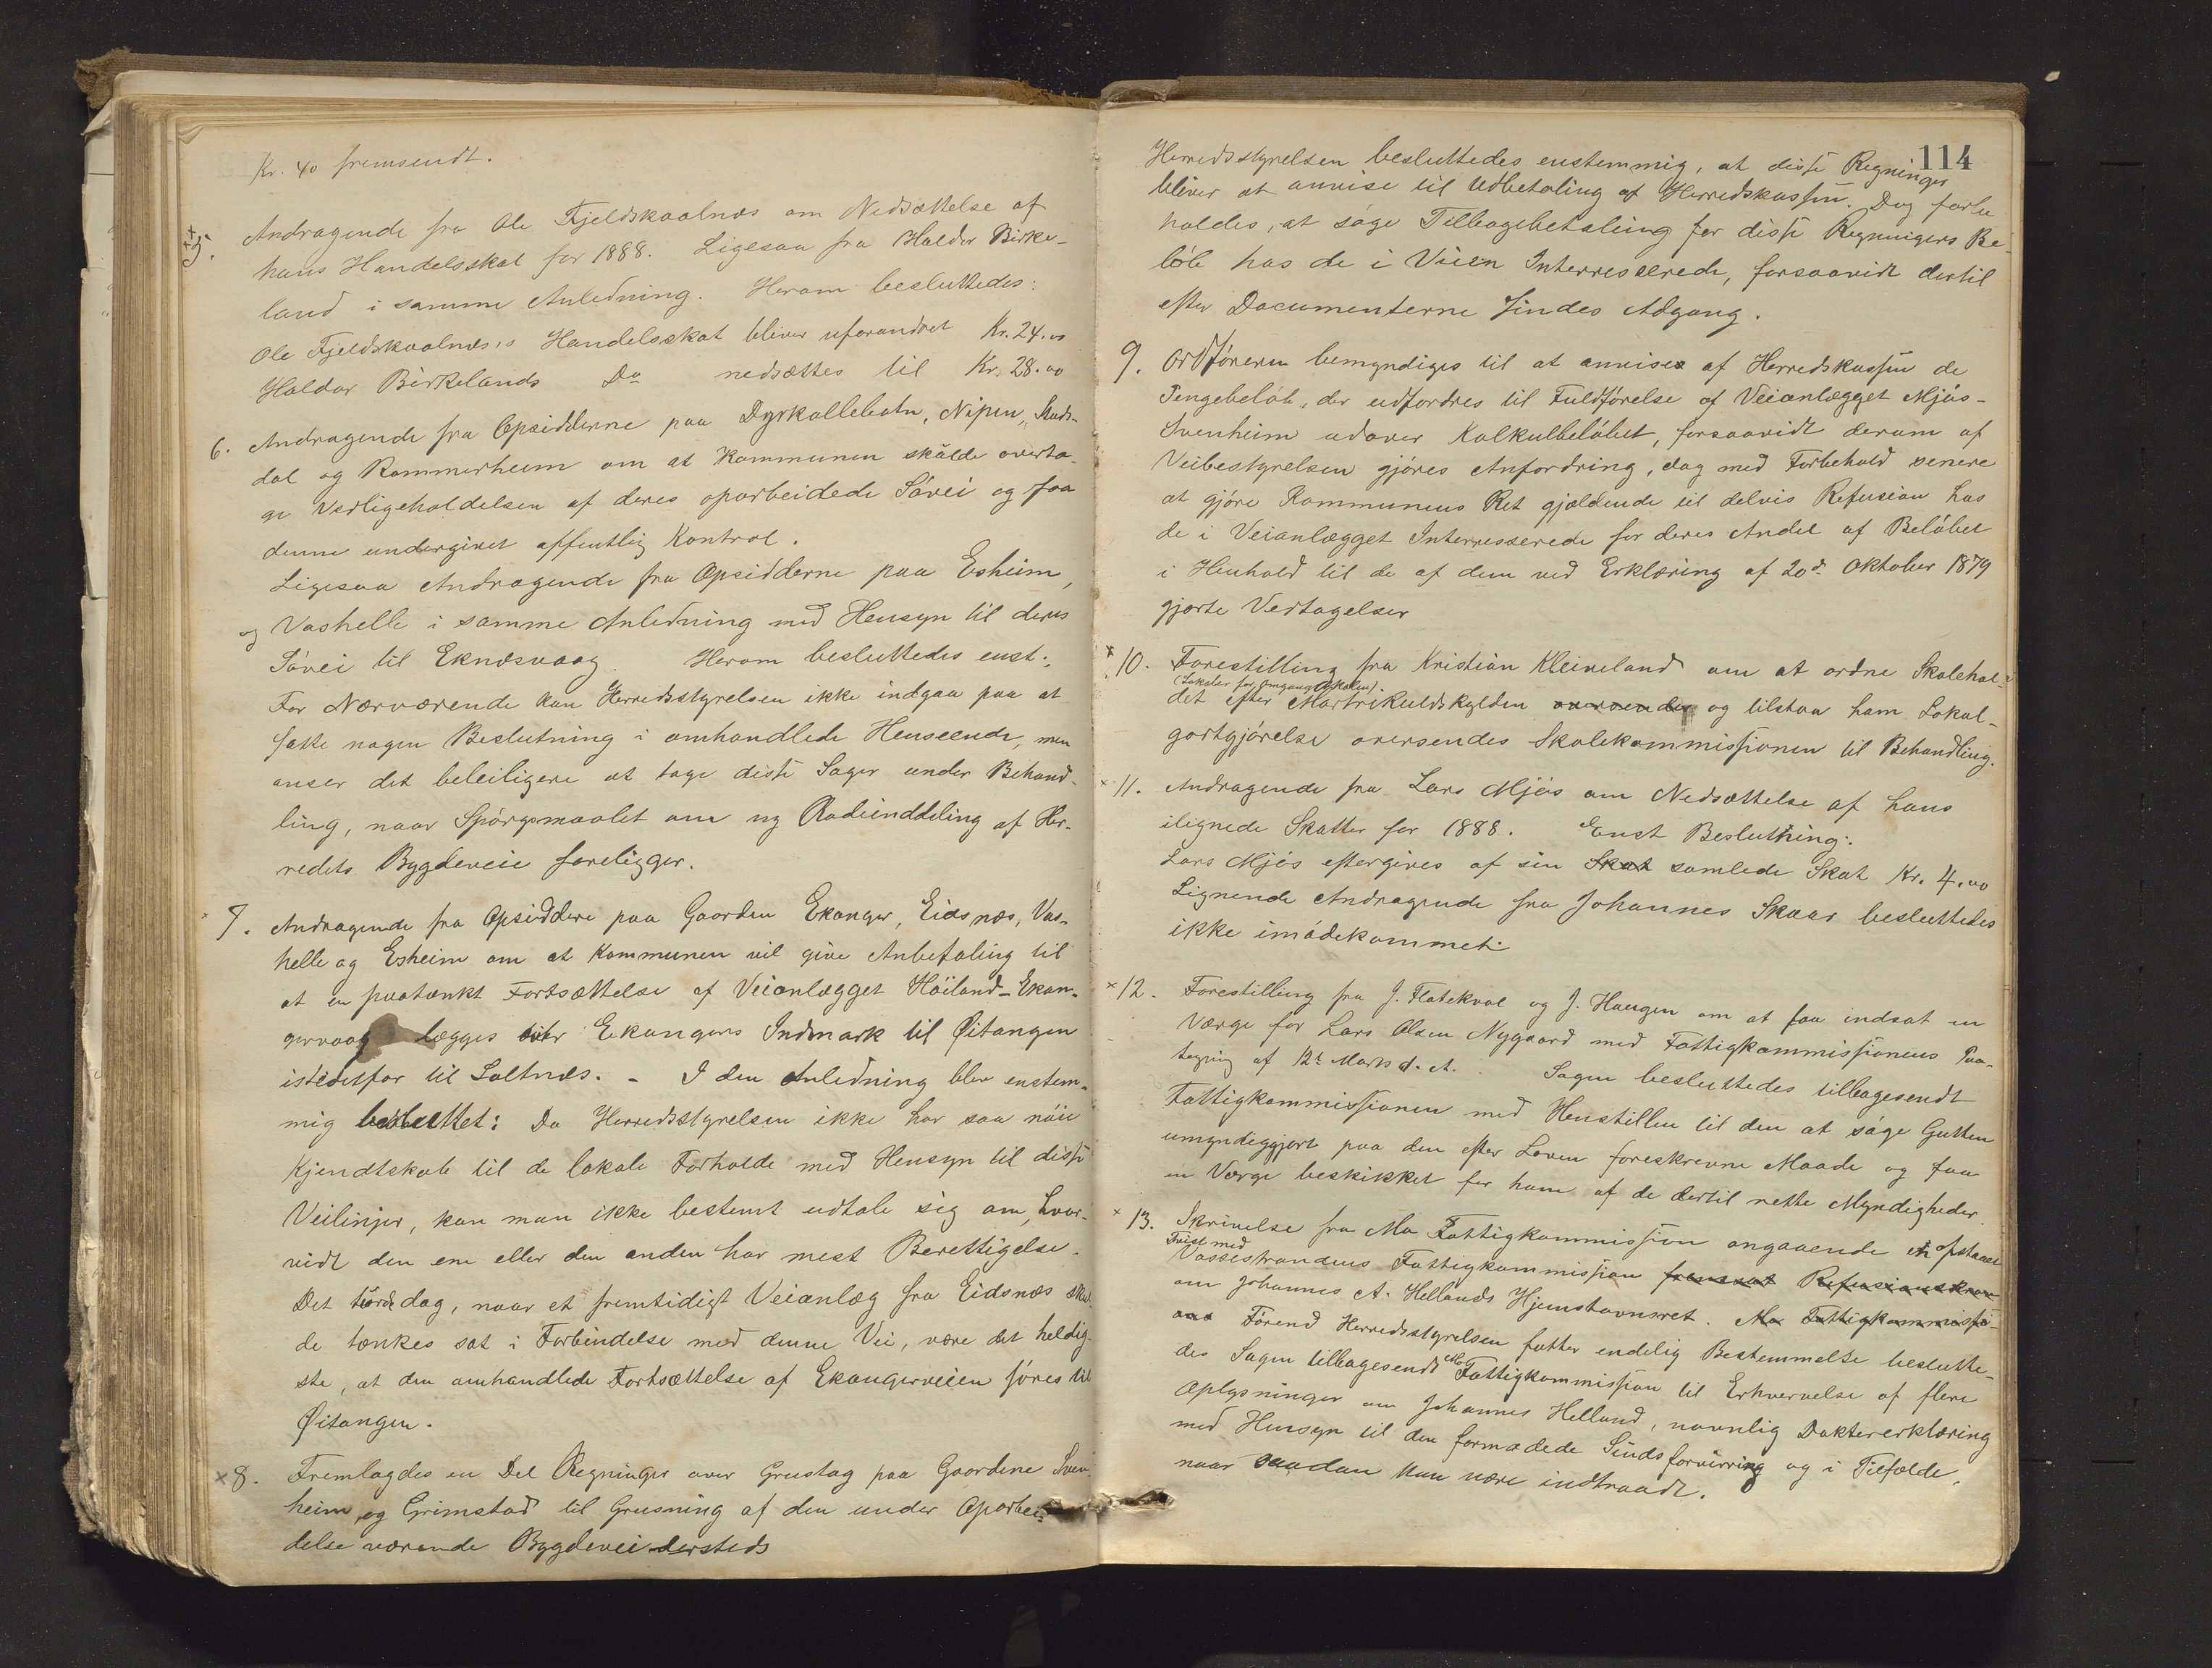 Kr. 40 fremsendt.
5. Andragende fra Ole Fjeldskaalnæs om Nedsættelse af
hans Handelsskat for 1888. Ligesaa fra Haldor Birke-
land i samme Anledning. Herom besluttedes:
Ole Fjeldskaalnæs's Handelsskat bliver uforandret Kr. 24.00
Haldor Birkelands Do nedsættes til Kr. 28.00
6. Andragende fra Opsidderne paa Dyrkollebotn, Nipen, Studs-
dal og Rommerheim om at Kommunen skulde overta-
ge Vedligeholdelsen af deres oparbeidede Søvei og faa
denne undergivet offentlig Kontrol.
Ligesaa Andragende fra Opsidderne paa Esheim,
og Vashelle i samme Anledning med Hensyn til deres
Søvei til Eknæsvaag. Herom besluttedes enst.:
For Nærværende kan Herredsstyrelsen ikke indgaa paa at
fatte nogen Beslutning i omhandlede Henseende, men
anser det beleiligere at tage disse Sager under Behand-
ling, naar Spørgsmaalet om ny Rodeinddeling af Her-
redets Bygdeveie foreligger.
7. Andragende fra Opsiddere paa Gaarden Ekanger, Eidsnæs, Vas-
helle og Esheim om at Kommunen vil give Anbefaling til
at en paatænkt Fortsættelse af Veianlægget Høiland-Ekan-
gervaag lægges over Ekangers Indmark til Øitangen
istedetfor til Saltnæs. - I den Anledning blev enstem-
mig besluttet: Da Herredsstyrelsen ikke har saa nøie
Kjendtskab til de lokale Forholde med Hensyn til disse
Veilinjer, kan man ikke bestemt udtale sig om, hvor-
vidt den ene eller den anden har mest Berettigelse.
Det turde dog, naar et fremtidigt Veianlæg fra Eidsnæs skul-
de tænkes sat i Forbindelse med denne Vei, være det heldig-
ste, at den omhandlede Fortsættelse af Ekangerveien føres til
Øitangen.
8. Fremlagdes en Del Regninger over Grustag paa Gaardene Sven-
heim og Grimstad til Grusning af den under Oparbei-
delse værende Bygdevei dersteds
114
Herredsstyrelsen besluttedes enstemmig, at disse Regninger
bliver at anvise til Udbetaling af Herredskassen. Dog forbe-
holdes, at søge Tilbagebetaling for disse Regningers Be-
løb hos de i Veien Interresserede, forsaavidt dertil
efter Documenterne findes Adgang.
9. Ordføreren bemyndiges til at anvise af Herredskassen de
Pengebeløb, der udfordres til Fuldførelse af Veianlægget Mjøs-
Svenheim udover Kalkulbeløbet, forsaavidt derom af
Veibestyrelsen gjøres Anfordring, dog med Forbehold senere
at gjøre Kommunens Ret gjældende til delvis Refusion hos
de i Veianlægget Interresserede for deres Andel af Beløbet
i Henhold til de af dem ved Erklæring af 20de Oktober 1879
gjorte Vedtagelser
10. Forestilling fra Kristian Kleiveland om at ordne Skolehol-
(Lokaler for Omgangsskolen).
det efter Martrikulskylden oversendes og tilstaa ham Lokal-
godtgjørelse oversendes Skolekommissionen til Behandling.
11. Andragende fra Lars Mjøs om Nedsættelse af hans
ilignede Skatter for 1888. Enst Beslutning:
Lars Mjøs eftergives af sin Skat samlede Skat Kr. 4.00
Lignende Andragende fra Johannes Skaar besluttedes
ikke imødekommet.
12. Forestilling fra J. Flatekval og J. Haugen om at faa indsat en
Værge for Lars Olsen Nygaard med Fattigkommissionens Paa-
tegning af 12te Marts d. A. Sagen besluttedes tilbagesendt
Fattigkommissionen med Henstillen til den at søge Gutten
umyndiggjort paa den efter Loven foreskrevne Maade og faa
en Værge beskikket for ham af de dertil rette Myndigheder.
13. Skrivelse fra Mo Fattigkommission angaaende en opstaaet
Tvist med
Vossestrandens Fattigkommission fremsat Refusionskrav
om Johannes A. Hellands Hjemstavnsret. Mo Fattigkommissi-
Førend Herredsstyrelsen fatter endelig Bestemmelse beslutte-
des Sagen tilbagesendt Mo Fattigkommission til Erhvervelse af flere
Oplysninger om Johannes Helland, navnlig Doktererklæring
med Hensyn til den formodede Sindsforvirring og i Tilfælde,
naar saadan kan være indtraadt.